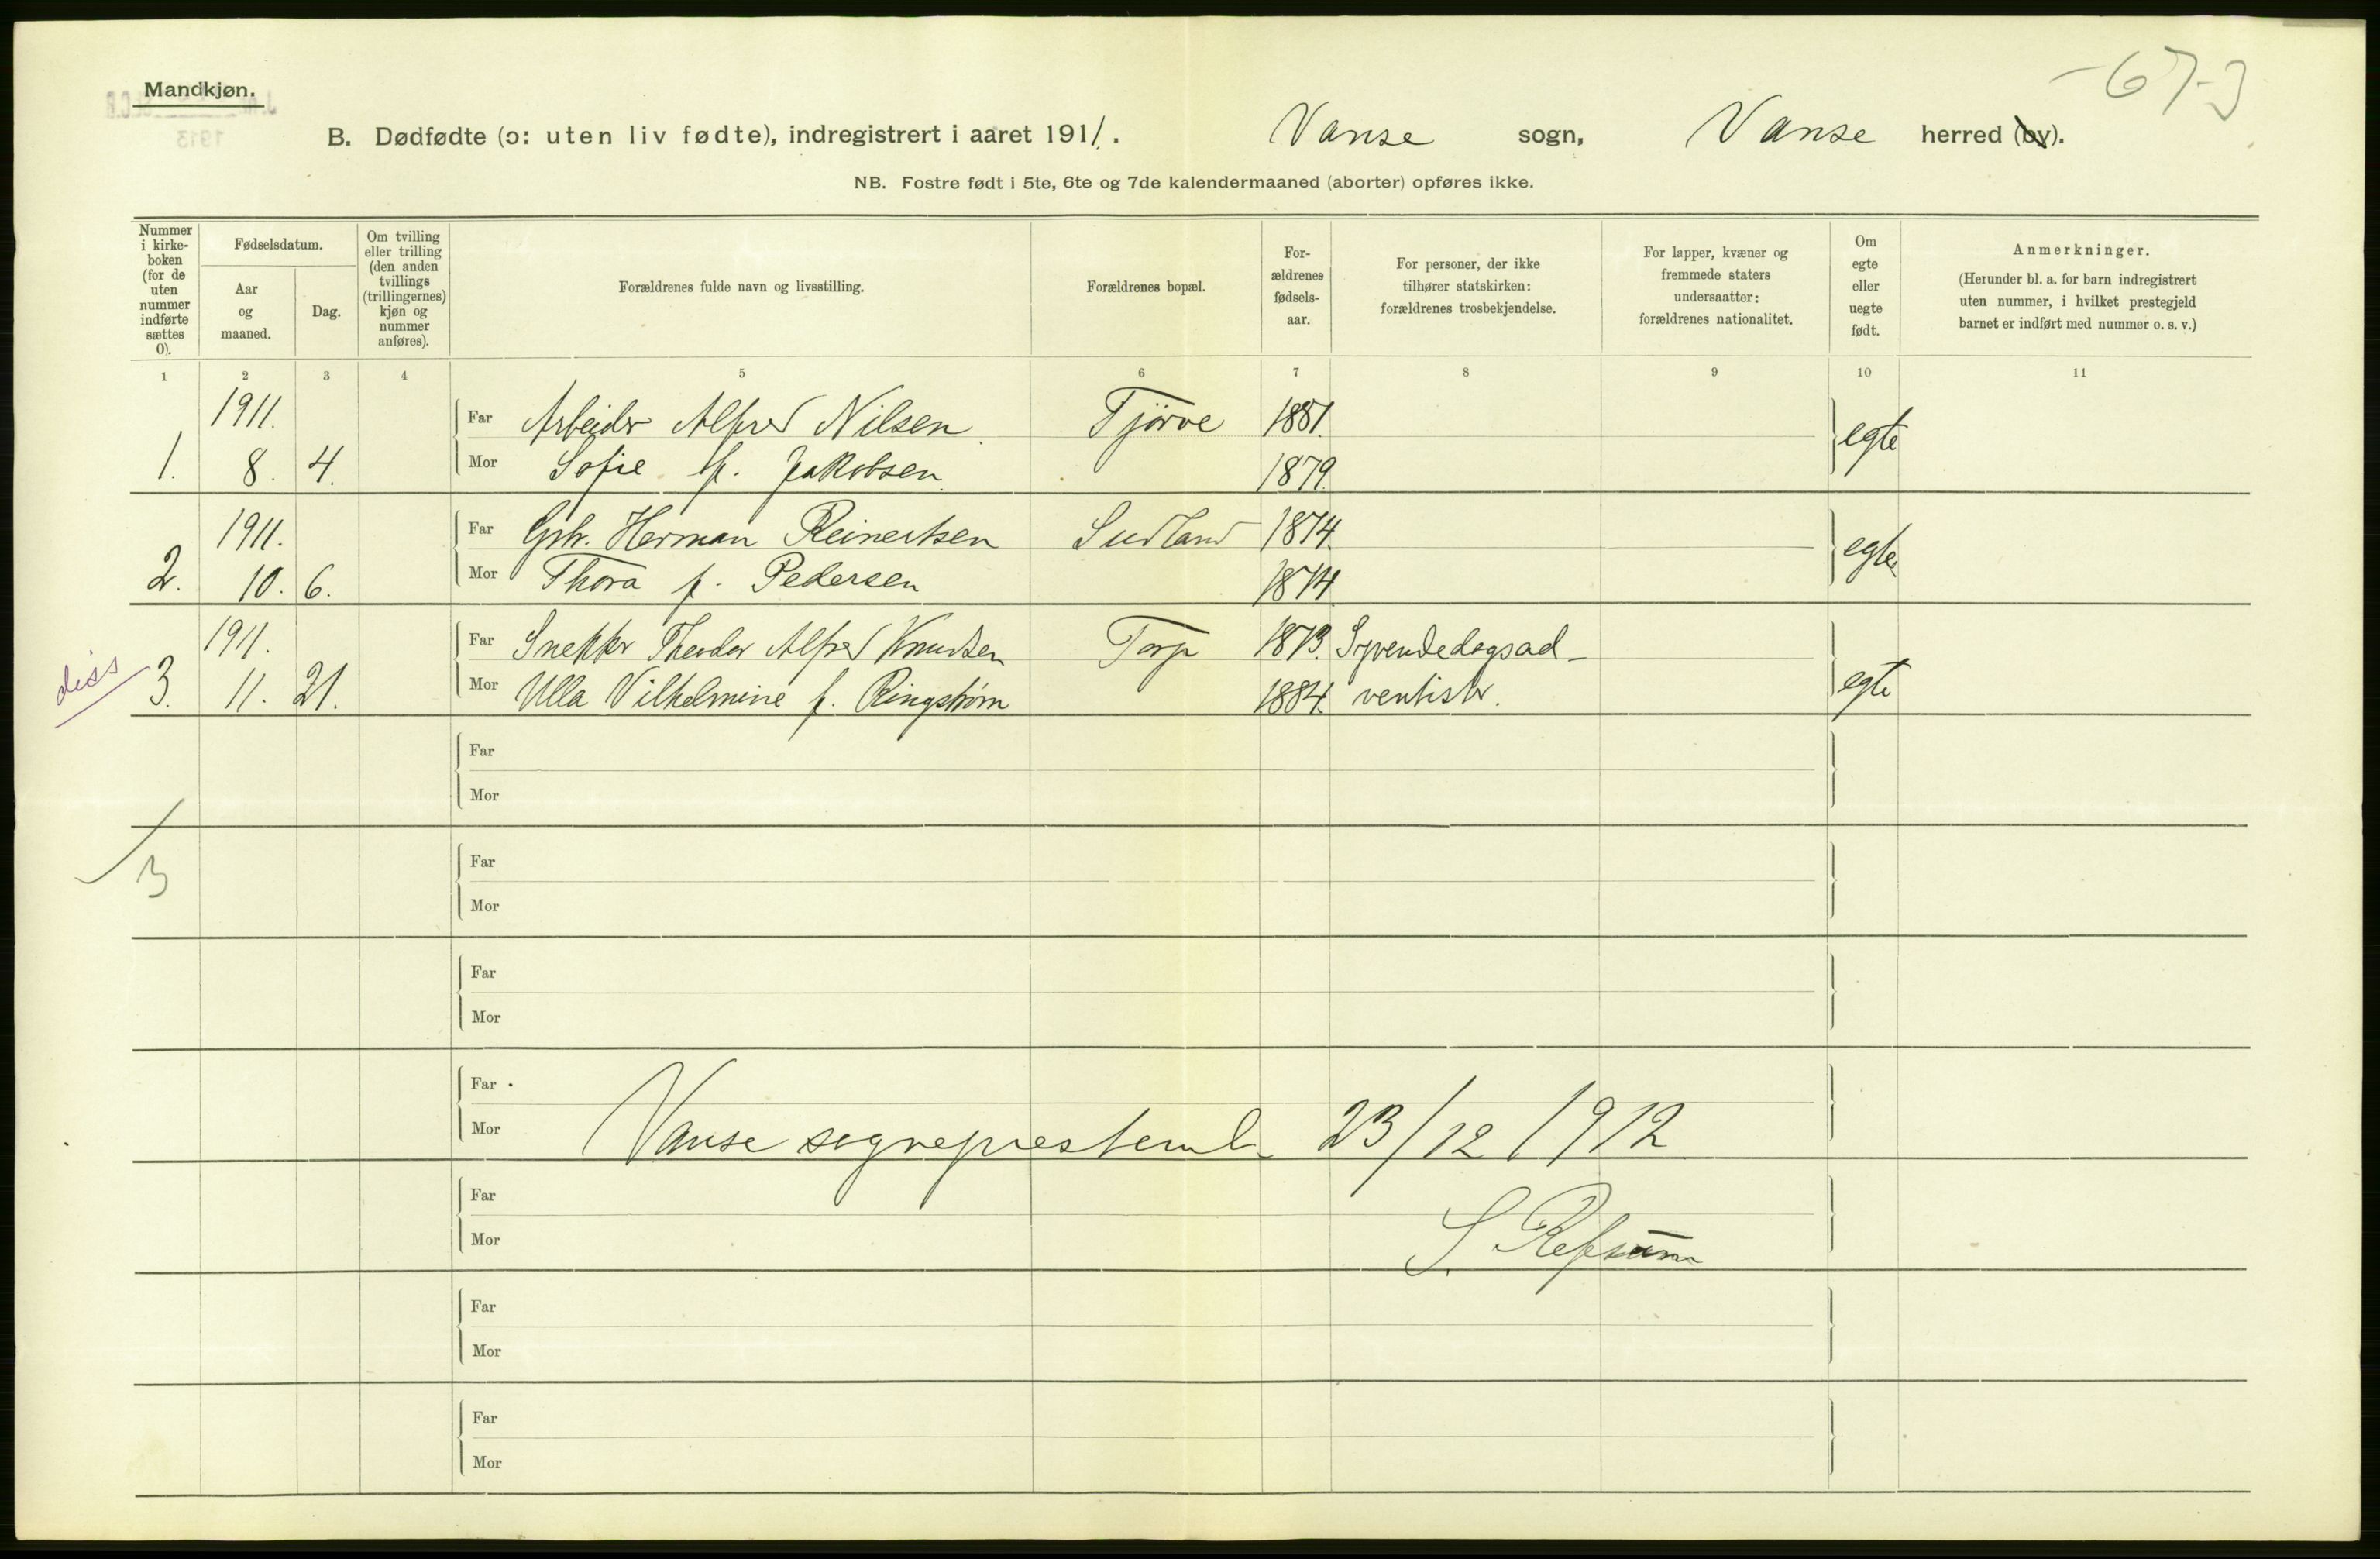 Mandkjøn.
-67-3
B. Dødfødte (ɔ: uten liv fødte), indregistrert i aaret 1911. Vanse sogn, Vanse herred (by).
NB. Fostre født i 5te, 6te og 7de kalendermaaned (aborter) opføres ikke.
Nummer i kirke-boken (for de uten nummer indførte sættes 0).
Fødselsdatum.
Aar og maaned.
Dag.
Om tvilling eller trilling (den anden tvillings (trillingernes) kjøn og nummer anføres).
Forældrenes fulde navn og livsstilling.
Forældrenes bopæl.
For-ældrenes fødsels-aar.
For personer, der ikke tilhører statskirken: forældrenes trosbekjendelse.
For lapper, kvæner og fremmede staters undersaatter: forældrenes nationalitet.
Om egte eller uegte født.
Anmerkninger.
(Herunder bl. a. for barn indregistrert uten nummer, i hvilket prestegjeld barnet er indført med nummer o. s. v.)
1 2 3 4 5 6 7 8 9 10 11
1911. Far Arbeider Alfred Nilsen. Tjörve 1881.
1. 8. 4. Mor Sofie f. Jakobsen. 1879. egte
1911. Far Gbr. Herman Reinertsen Sudland 1874.
2. 10. 6. Mor Thora f. Pedersen 1874 egte
1911. Far Snekker Theodor Alfred Knudsen Torp 1873. Syvendedagsad-
diss 3. 11. 21. Mor Ulla Vilhelmine f. Ringstrøm 1884. ventister. egte
Far
Mor
3
Far
Mor
Far
Mor
Far
Mor Vanse sogneprestemb. 23/12 1912
Far
Mor S. Refsum
Far
Mor
Far
Mor